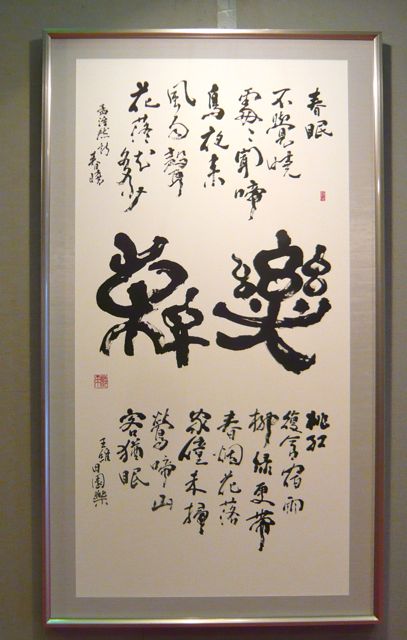 春眠
不覺曉
處々聞啼
鳥夜来
風雨聲
花落知多少
孟浩然詩
春曉
樂
桃紅
復含宿雨
柳緑更帯
春烟花落
家僮未掃
鶯啼山
客猶眠
王維田園樂